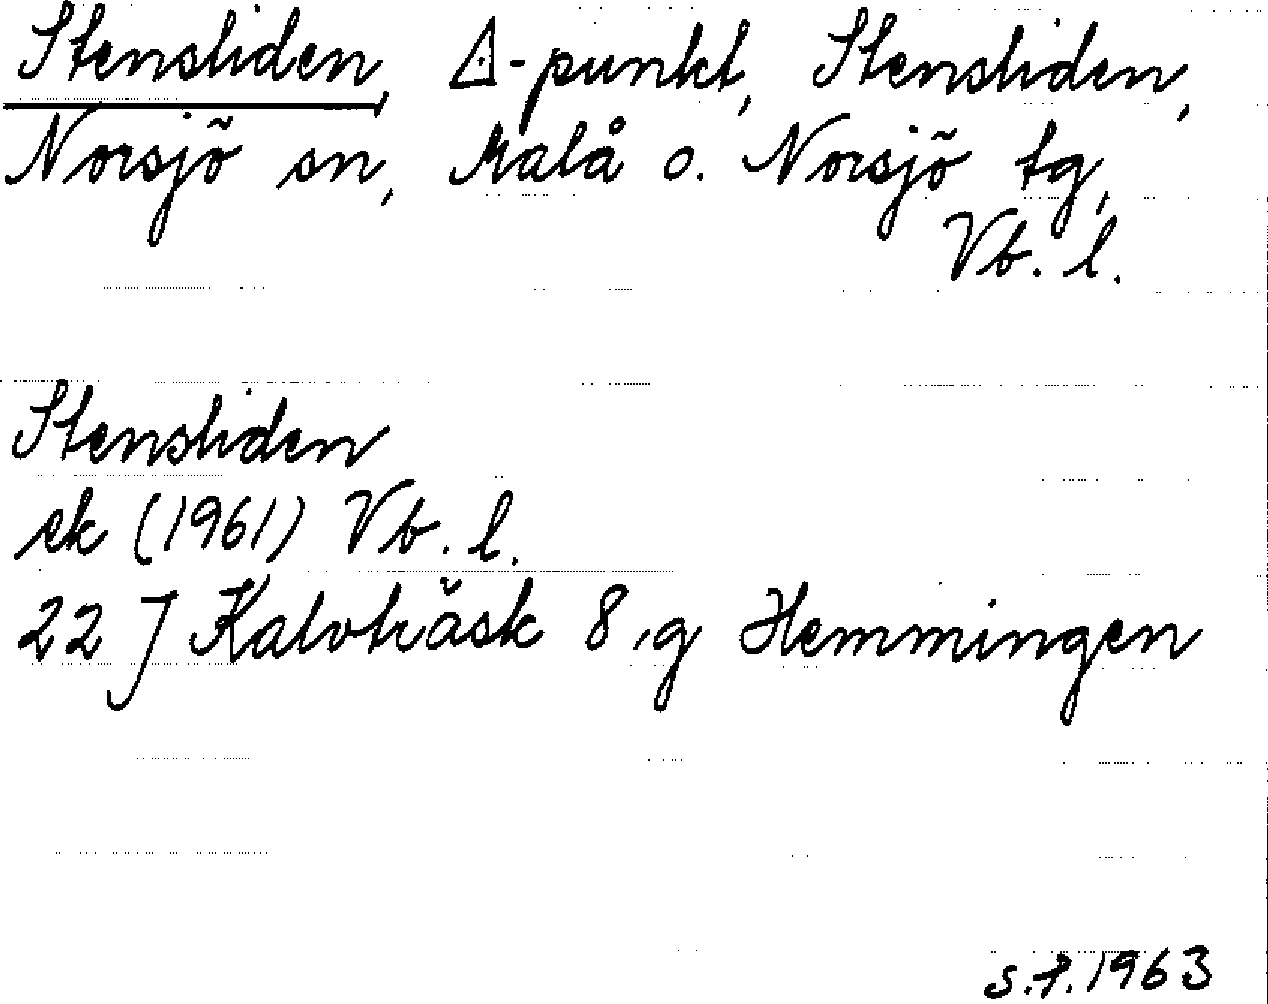 Stensliden, △-punkt, Stensliden,
Norsjö sn, Malå o. Norsjö tg,
Vb. l.
Stensliden
ek (1961) Vb. l.
22 J Kalvträsk 8, g Hemmingen
S.f. 1963